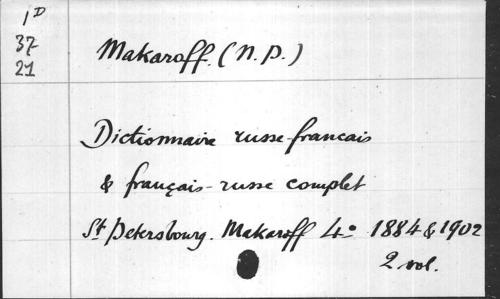 1D
37
21
Makaroff. (N.P.)
Dictionnaire russe-francais
& français-russe complet
St Petersbourg. Makaroff 4° 1884 & 1902
2 vol.